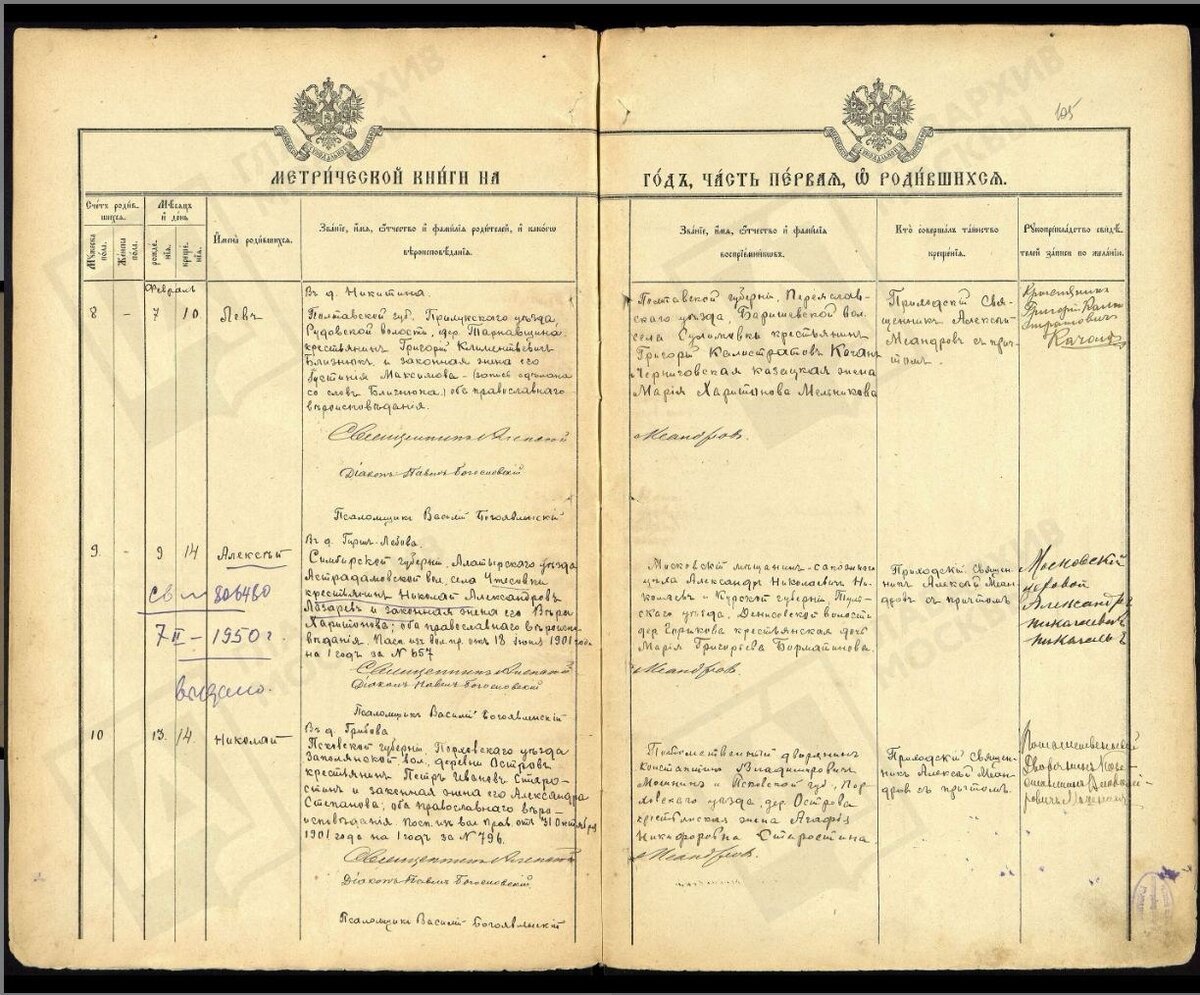 105
МЕТРИ́ЧЕСКОЙ КНИ́ГИ НА
ГО́ДЪ, ЧА́СТЬ ПЕ́РВАЯ, Ѡ РОДИ́ВШИХСЯ.
Счетъ роди́вшихся.
Му́жеска по́ла.
Же́нска по́ла.
Мѣ́сяцъ и день
рожде́нія.
креще́нія.
Имена родившихся.
Зва́ніе, и́мя, о́тчество и фами́лія роди́телей, и како́го вѣроисповѣ́данія.
Зва́ніе, и́мя, о́тчество и фами́лія воспріе́мниковъ.
Кто̀ соверша́лъ та́инство креще́нія.
Рукоприкла́дство свидѣ́телей за́писи по жела́нію.
Февраль
8
-
7
10
Левъ
Въ д. Никитина.
Полтавской губ. Прилукскаго уѣзда,
Рудовской волости, дер. Тарнавщина
крестьянинъ Григорій Климентьевичъ
Близнюкъ и законная жена его
Іустинія Максимова - (запись сдѣлана
со словъ Близнюка) оба православнаго
вѣроисповѣданія.
Священникъ Алексѣй
Діаконъ Павелъ Богословскій
Псаломщикъ Василій Богоявленскій
Полтавской губерніи, Переяслав-
скаго уѣзда Барышевской вол.
села Сулимовки крестьянинъ
Григорій Калистратовъ
Черниговская казацкая жена
Марія Харитонова Мельникова
Меандровъ.
Приходскій Свя-
щенникъ Алексѣй
Меандровъ съ прич-
томъ
Крестьянинъ
Григорій
9.
-
9
14
Алексѣй
Въ д. Гирш-
Симбирской губерніи, Алатырскаго уѣзда
Астрадамовской вол. села Чтесовки
крестьянинъ Николай Александровъ
и законная жена его Вѣра
Харитонова; оба православнаго вѣроиспо-
вѣданія. Пасп. из вол. пр. отъ 18 іюля 1901 года
на 1 годъ за № 657
Священникъ Алексѣй
Діаконъ Павелъ Богословскій
Псаломщикъ Василій Богоявленскій
806480
7 II - 1950 г.
выдано.
Московскій мѣщанинъ сапожнаго
цѣха Александръ Николаевичъ Ни-
колаевъ и Курской губерніи
скаго уѣзда, Денисовской волости
дер. Горшкова крестьянская дочь
Марія Григорьева
Меандровъ.
Приходскій Священ-
никъ Алексѣй Меан-
дровъ съ причтомъ
Московскій
цеховой
Александръ
Николаевичъ
Николаевъ
10
13
14
Николай
Въ д. Грибова
Псковской губерніи, Порховскаго уѣзда
Заполянской вол. деревни Островъ
крестьянинъ Петръ Ивановъ Старо-
стинъ и законная жена его Александра
Степанова; оба православнаго вѣро-
исповѣданія. Пасп. из вол. прав. отъ 31 Октября
1901 года на 1 годъ за № 796.
Священникъ Алексѣй
Діаконъ Павелъ Богословскій
Псаломщикъ Василій Богоявленскій
Потомственный дворянинъ
Константинъ Владиміровичъ
и Псковской губ., Пор-
ховскаго уѣзда, дер. Острова
крестьянская жена Агафія
Никифоровна Старостина
Меандровъ.
Приходскій Священ-
никъ Алексѣй Меан-
дровъ съ причтомъ.
Потомственный
Дворянинъ
ГЛАВАРХИВ МОСКВЫ